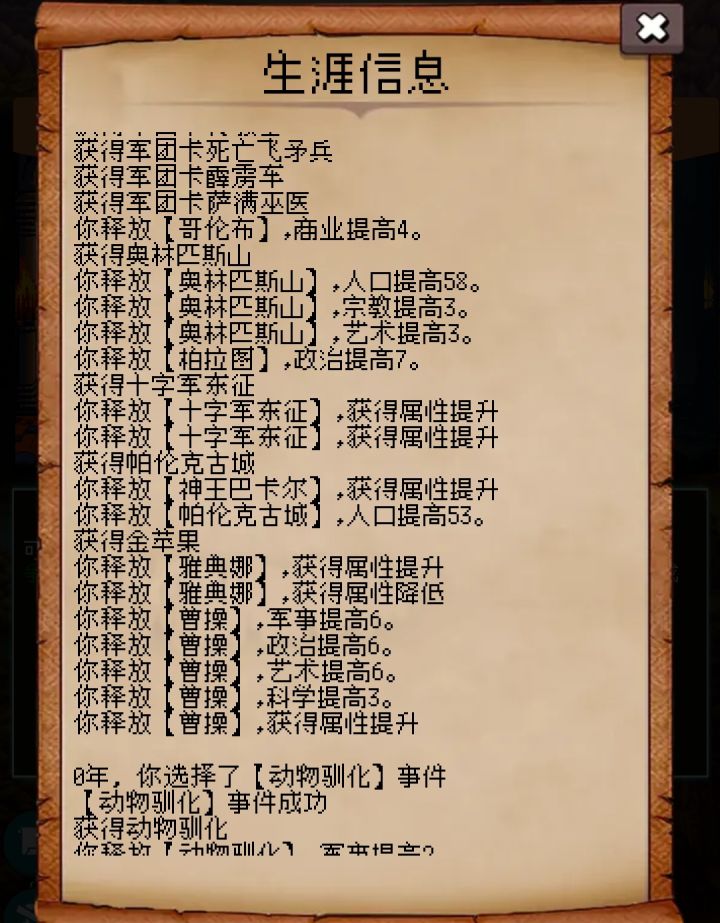 生涯信息
获得军团卡死亡飞矛兵
获得军团卡霹雳车
获得军团卡萨满巫医
你释放【哥伦布】,商业提高4。
获得奥林匹斯山
你释放【奥林匹斯山】,人口提高58。
你释放【奥林匹斯山】,宗教提高3。
你释放【奥林匹斯山】,艺术提高3。
你释放【柏拉图】,政治提高7。
获得十字军东征
你释放【十字军东征】,获得属性提升
你释放【十字军东征】,获得属性提升
获得帕伦克古城
你释放【神王巴卡尔】,获得属性提升
你释放【帕伦克古城】,人口提高53。
获得金苹果
你释放【雅典娜】,获得属性提升
你释放【雅典娜】,获得属性降低
你释放【曹操】,军事提高6。
你释放【曹操】,政治提高6。
你释放【曹操】,艺术提高6。
你释放【曹操】,科学提高3。
你释放【曹操】,获得属性提升
0年，你选择了【动物驯化】事件
【动物驯化】事件成功
获得动物驯化
你释放【动物驯化】,军事提高